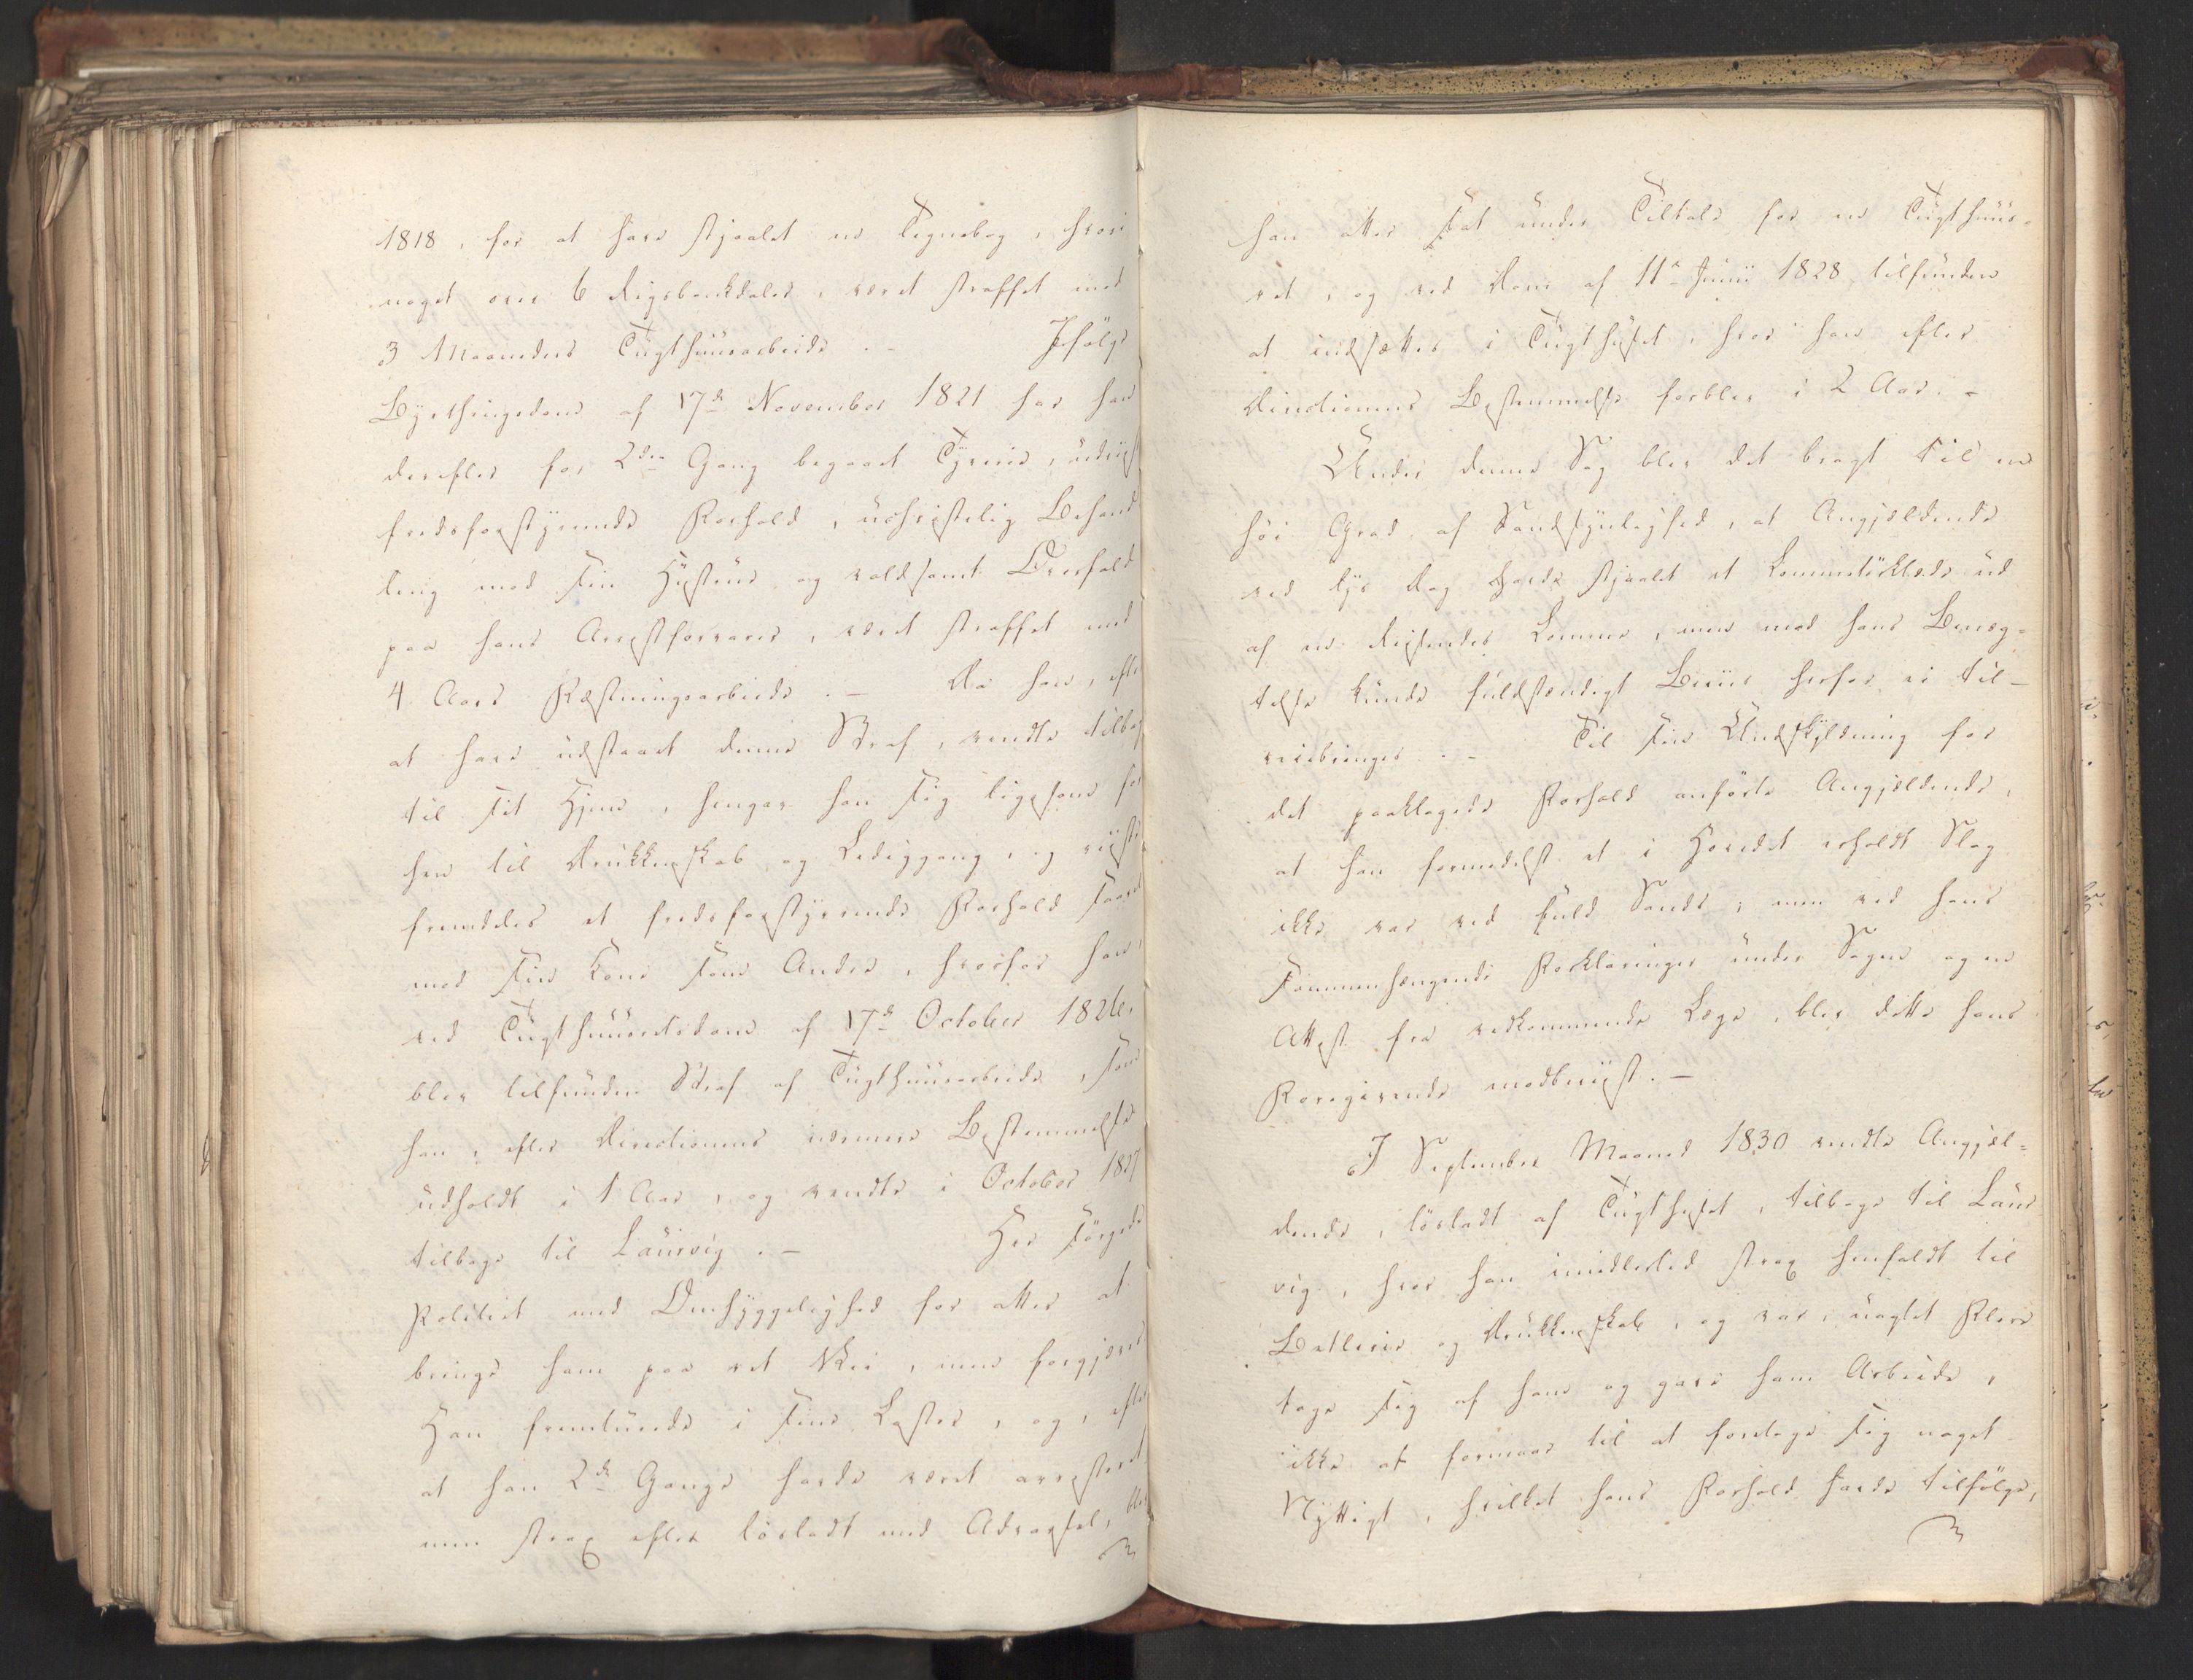 1818, for at have stjaalet en Tegnebog, hvori
noget over 6 Rigsbankdaler, været straffet med
3 Maaneders Tugthuusarbeide. - Ifølge
Byethingsdom af 17de November 1821 har han
derefter for 2den Gang begaaet Tyverie, udviist
fredsforstyrrende Forhold, uchristelig Behand
ling mod sin Hustrue og voldsomt Overfald
paa hans Arrestforvarer, været straffet med
4 Aars Fæstningsarbeide. - Da han, efter
at have udstaaet denne Straf, vendte tilbage
til sit Hjem, hengav han sig ligesom før
hen til Drukkenskab og Lediggang, og viiste
fremdeles et fredsforstyrrende Forhold saavel
mod sin Kone som Andre, hvorfor han,
ved Tugthuusretsdom af 17de October 1826,
blev tilfunden Straf af Tugthuusarbeide, som
han, efter Directionens nærmere Bestemmelse
udholdt i 1 Aar, og vendte i October 1827
tilbage til Laurvig. - Her sørgede
Politiet med Omhyggelighed for atter at
bringe ham paa ret Vei, men forgjæves
Han fremturede i sine Laster, og, efter
at han 2de Gange havde været arresteret
men strax efter løsladt med Advarsel, blev
han atter sat under Tiltale for en Tugthuus-
ret, og ved Dom af 11te Junii 1828 tilfunden
at indsættes i Tugthuset, hvor han efter
Directionens Bestemmelse forblev i 2 Aar. -
Under denne Sag blev det bragt til en
høi Grad af Sandsynlighed, at Angjældende
ved lys Dag havde stjaalet et Lommetørklæde ud
af en Reisendes Lomme, men mod hans Benæg-
telse kunde fuldstændigt Beviis herfor ei til-
veiebringes. - Til sin Undskyldning for
det paaklagede Forhold anførte Angjældende,
at han formedelst et i Hovedet erholdt Slag
ikke var ved fuld Sands; men ved hans
sammenhængende Forklaringer under Sagen og en
Attest fra vedkommende Læge, blev dette hans
Foregivende modbeviist. -
I September Maaned 1830 vendte Angjæl-
dende, løsladt af Tugthuset, tilbage til Laur
vig, hvor han imidlertid strax henfaldt til
Betlerie og Drukkenskab, og var, uagtet Flere
toge sig af ham og gave ham Arbeide,
ikke at formaae til at foretage sig noget
Nyttigt, hvilket hans Forhold havde tilfølge,